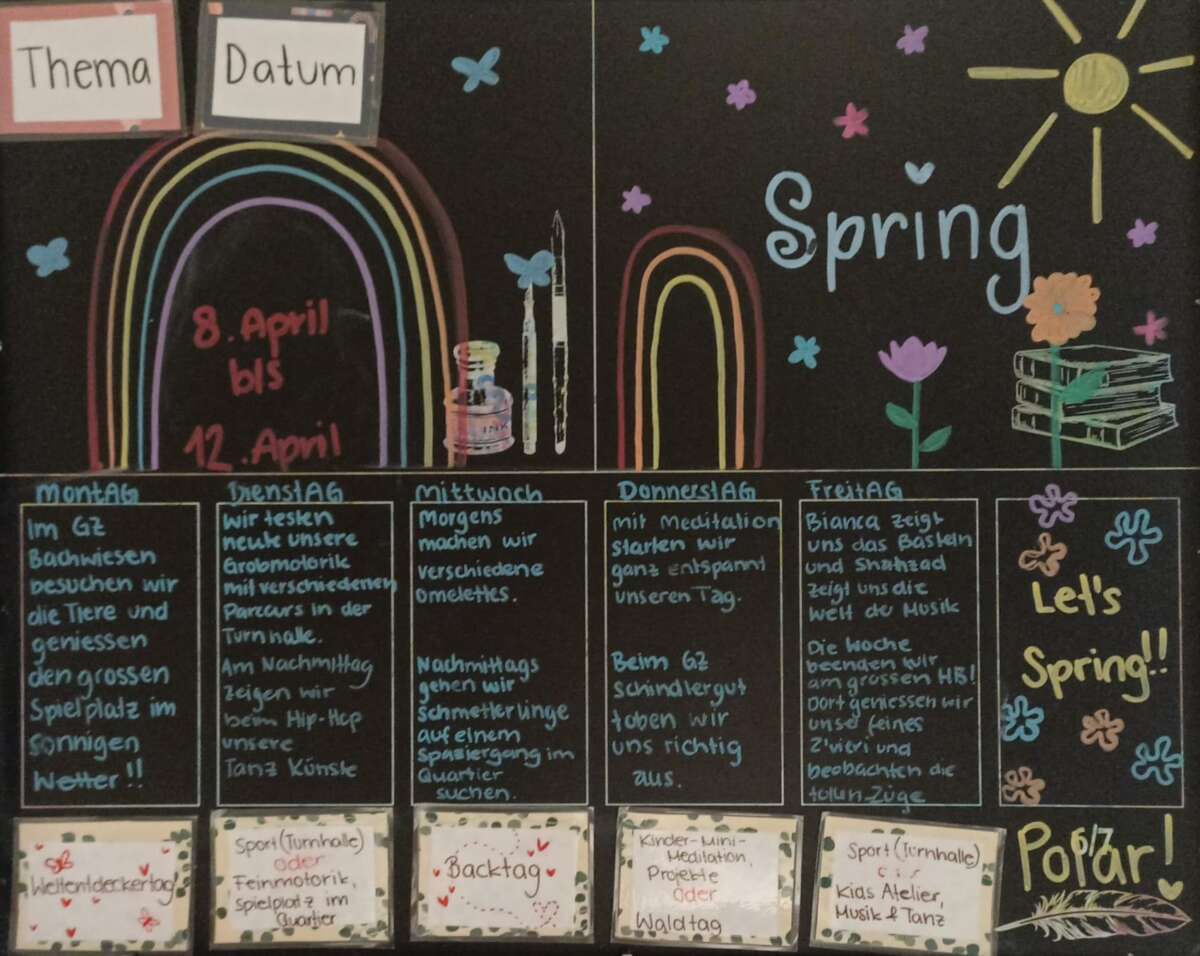 Thema
Datum
8. April
bis
12. April
Spring
INK
MontAG
Im GZ
Bachwiesen
besuchen wir
die Tiere und
geniessen
den grossen
Spielplatz im
sonnigen
Wetter!!
DienstAG
Wir testen
heute unsere
Grobmotorik
mit verschiedenen
Parcurs in der
Turnhalle.
Am Nachmittag
zeigen wir
beim Hip-Hop
unsere
Tanz Künste
Mittwoch
Morgens
machen wir
verschiedene
omelettes.
Nachmittags
gehen wir
Schmetterlinge
auf einem
Spaziergang im
Quartier
suchen.
DonnerstAG
mit Meditation
starten wir
ganz entspannt
unseren Tag.
Beim GZ
Schindlergut
toben wir
uns richtig
aus.
FreitAG
Bianca zeigt
uns das Basteln
und Shahzad
zeigt uns die
Welt der Musik
Die Woche
beenden wir
am grossen HB!
Dort geniessen wir
unser feines
Z'vieri und
beobachten die
tollen Züge
Let's
Spring!!
Weltentdeckertag
Sport (Turnhalle)
oder
Feinmotorik,
Spielplatz im
Quartier
Backtag
Kinder-Mini-
Meditation,
Projekte
oder
Waldtag
Sport (Turnhalle)
Kids Atelier,
Musik & Tanz
Polar!
6/7